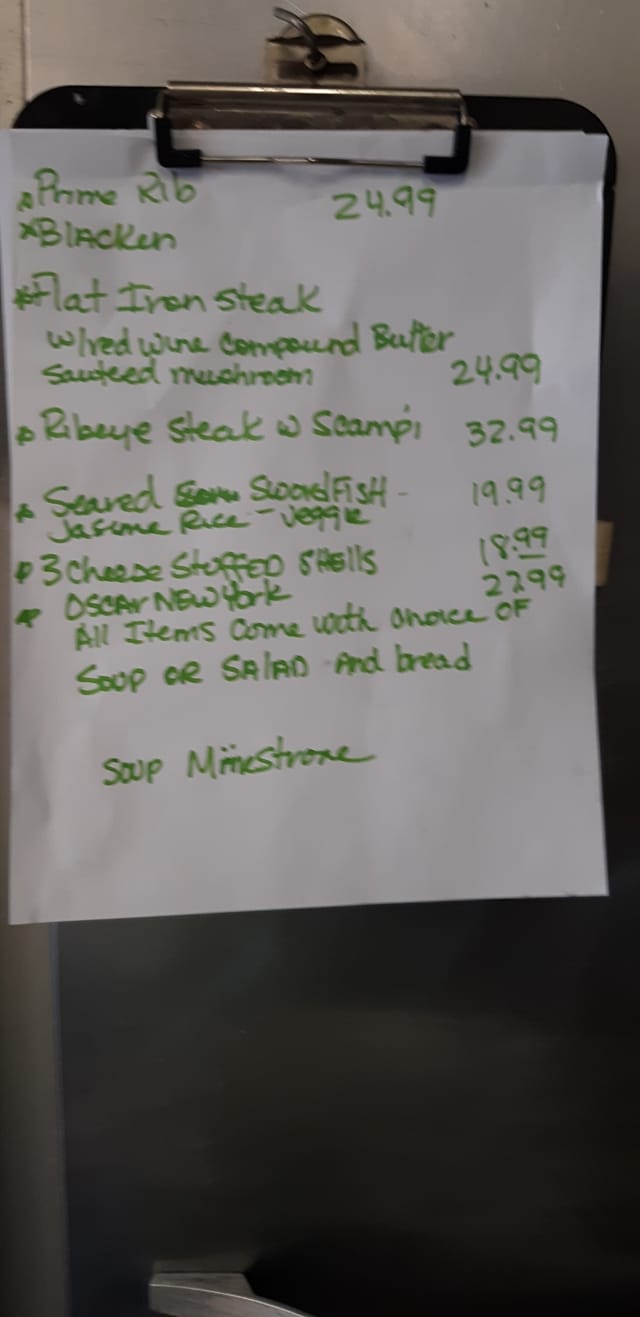 *Prime Rib 24.99
*Blacken
*Flat Iron Steak
w/red wine Compound Butter
Sauteed mushroom 24.99
*Ribeye Steak w Scampi 32.99
*Seared SwordFish - 19.99
Jasime Rice - Veggie
*3 Cheese Stuffed Shells 18.99
*OSCAR NEW York 22.99
All Items Come with Choice OF
Soup OR SALAD and bread
Soup Minestrone